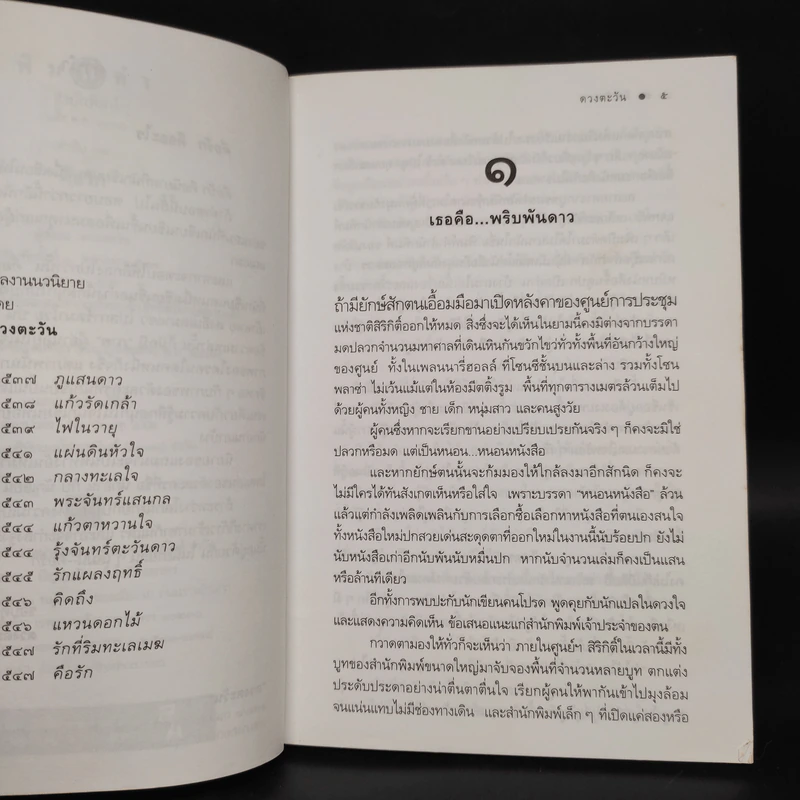 ลงานนวนิยาย
ดย
วงตะวัน
๕๓๗ ภูแสนดาว
๕๓๘ แก้วรัดเกล้า
๕๓๙ ไฟในวายุ
๕๔๑ แผ่นดินหัวใจ
๕๔๒ กลางทะเลใจ
๕๔๓ พระจันทร์แสนกล
๕๔๔ แก้วตาหวานใจ
๕๔๔ รุ้งจันทร์ตะวันดาว
๕๔๕ รักแผลงฤทธิ์
๕๔๖ คิดถึง
๕๔๖ แหวนดอกไม้
๕๔๗ รักที่ริมทะเลเมฆ
๕๔๗ คือรัก
ดวงตะวัน ● ๕
๑
เธอคือ...พริบพันดาว
ถ้ามียักษ์สักตนเอื้อมมือมาเปิดหลังคาของศูนย์การประชุม
แห่งชาติสิริกิติ์ออกให้หมด สิ่งซึ่งจะได้เห็นในยามนี้คงมิต่างจากบรรดา
มดปลวกจำนวนมหาศาลที่เดินเหินกันขวักไขว่ทั่วทั้งพื้นที่อันกว้างใหญ่
ของศูนย์ ทั้งในเพลนนารี่ฮอลล์ ที่โซนซีชั้นบนและล่าง รวมทั้งโซน
พลาซ่า ไม่เว้นแม้แต่ในห้องมีตติ้งรูม พื้นที่ทุกตารางเมตรล้วนเต็มไป
ด้วยผู้คนทั้งหญิง ชาย เด็ก หนุ่มสาว และคนสูงวัย
ผู้คนซึ่งหากจะเรียกขานอย่างเปรียบเปรยกันจริง ๆ ก็คงจะมิใช่
ปลวกหรือมด แต่เป็นหนอน...หนอนหนังสือ
และหากยักษ์ตนนั้นจะก้มมองให้ใกล้ลงมาอีกสักนิด ก็คงจะ
ไม่มีใครได้ทันสังเกตเห็นหรือใส่ใจ เพราะบรรดา “หนอนหนังสือ” ล้วน
แล้วแต่กำลังเพลิดเพลินกับการเลือกซื้อเลือกหาหนังสือที่ตนเองสนใจ
ทั้งหนังสือใหม่ปกสวยเด่นสะดุดตาที่ออกใหม่ในงานนี้นับร้อยปก ยังไม่
นับหนังสือเก่าอีกนับพันนับหมื่นปก หากนับจำนวนเล่มก็คงเป็นแสน
หรือล้านทีเดียว
อีกทั้งการพบปะกับนักเขียนคนโปรด พูดคุยกับนักแปลในดวงใจ
และแสดงความคิดเห็น ข้อเสนอแนะแก่สำนักพิมพ์เจ้าประจำของตน
กวาดตามองให้ทั่วก็จะเห็นว่า ภายในศูนย์ฯ สิริกิติ์ในเวลานี้มีทั้ง
บูทของสำนักพิมพ์ขนาดใหญ่มาจับจองพื้นที่จำนวนหลายบูท ตกแต่ง
ประดับประดาอย่างน่าตื่นตาตื่นใจ เรียกผู้คนให้พากันเข้าไปมุงล้อม
จนแน่นแทบไม่มีช่องทางเดิน และสำนักพิมพ์เล็ก ๆ ที่เปิดแค่สองหรือ